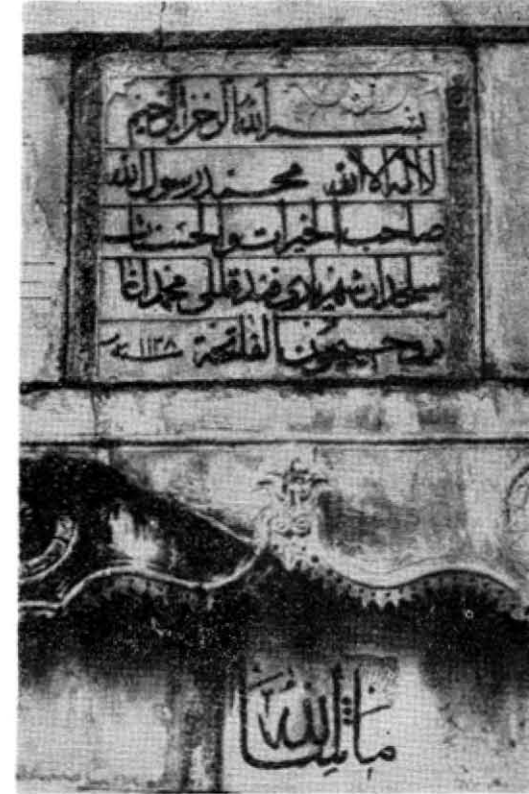 بسم الله الرحمن الرحيم
لا اله الا الله محمد رسول الله
صاحب الخيرات والحسنات
سلحدار شهرياري فندقللي محمد اغا
روحيچون الفاتحة سنه ١١٣٨
ما شاء الله